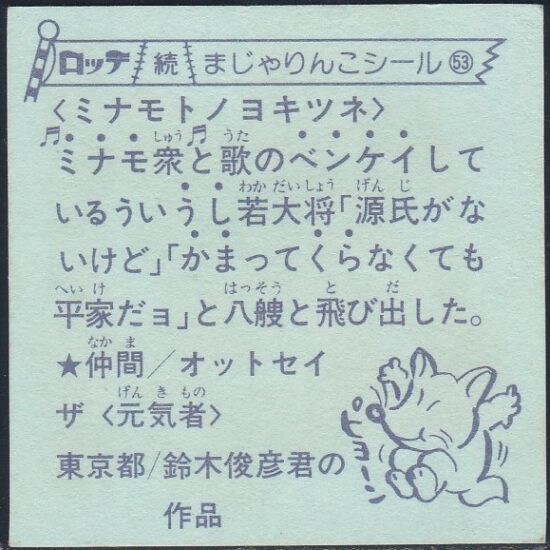 ロッテ 続 まじゃりんこシール 53
〈ミナモトノヨキツネ〉
ミナモ衆と歌のベンケイして
いるういうし若大将「源氏がな
いけど」「かまってくらなくても
平家だョ」と八艘と飛び出した。
★仲間/オットセイ
ザ〈元気者〉
東京都/鈴木俊彦君の
作品
ピョーン